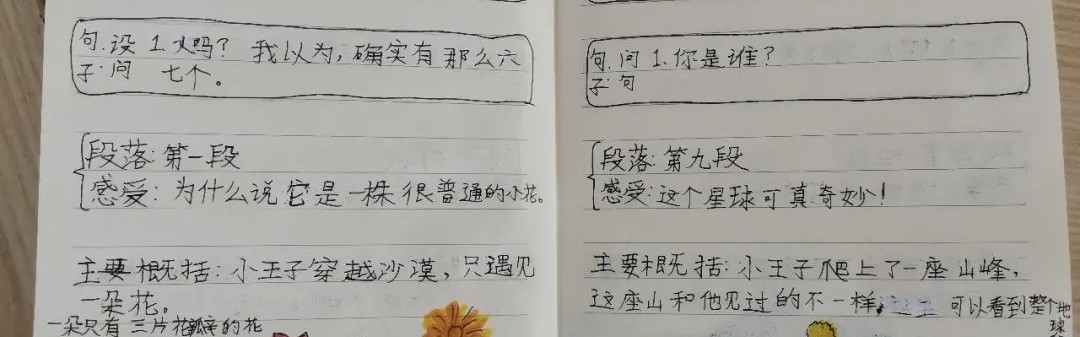 句子:设问 1.人吗?我以为,确实有那么六
七个。
段落:第一段
感受:为什么说它是一株很普通的小花。
主要概括:小王子穿越沙漠,只遇见
一朵花。
一朵只有三片花瓣的花
句子:问句 1.你是谁?
段落:第九段
感受:这个星球可真奇妙!
主要概括:小王子爬上了一座山峰,
这座山和他见过的不一样,可以看到整个地
球